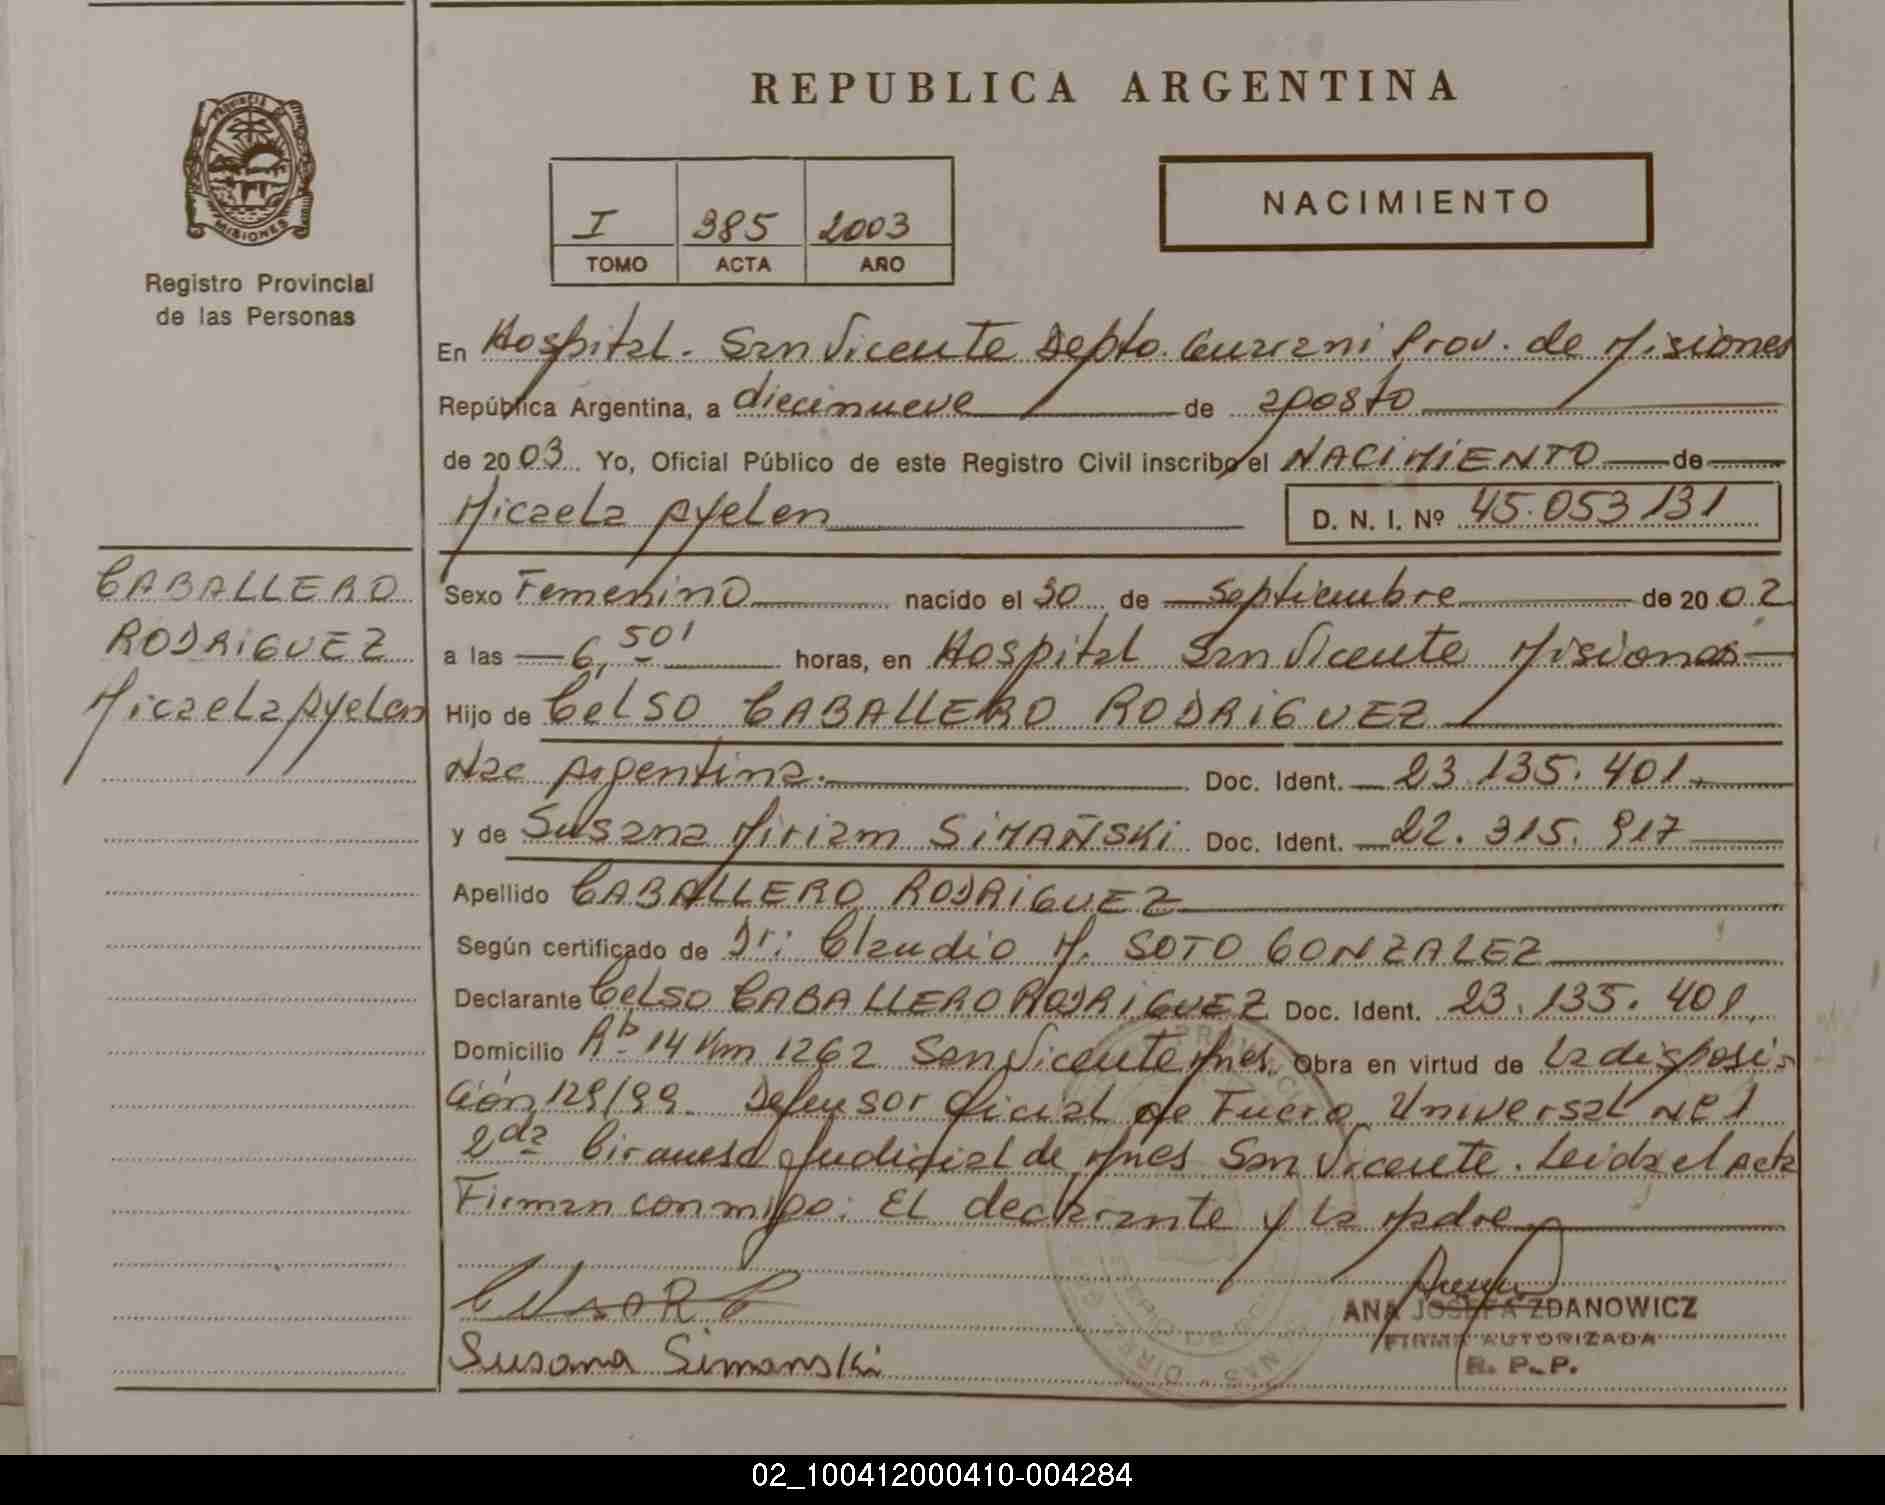 REPUBLICA ARGENTINA
PROVINCIA
MISIONES
Registro Provincial
de las Personas
I 385 2003
TOMO ACTA AÑO
NACIMIENTO
En Hospital. San Vicente Depto. Guarani Prov. de Misiones
República Argentina, a diecinueve de agosto
de 2003 Yo, Oficial Público de este Registro Civil inscribo el NACIMIENTO de
Micaela Ayelen D. N. I. Nº 45.053131
CABALLERO
RODRIGUEZ
Micaela Ayelen
Sexo Femenino nacido el 30 de Septiembre de 2002
a las 6,50' horas, en Hospital San Vicente Misiones
Hijo de Celso CABALLERO RODRIGUEZ
Nac Argentina. Doc. Ident. 23.135.401.
y de Susana Miriam SIMAÑSKI Doc. Ident. 22.315.917
Apellido CABALLERO RODRIGUEZ
Según certificado de Dr: Claudio M. SOTO GONZALEZ
Declarante Celso CABALLERO RODRIGUEZ Doc. Ident. 23.135.401.
Domicilio Rb 14 Km 1262 San Vicente Mnes. Obra en virtud de la disposi-
ción 129/99. Defensor Oficial de Fuero Universal Nº 1
2da Circunsc Judicial de Mnes San Vicente. Leida el acta
Firman conmigo: El declarante y la Madre
Susana Simanski
ANA JOSEFA ZDANOWICZ
FIRMA AUTORIZADA
R. P. P.
02_100412000410-004284